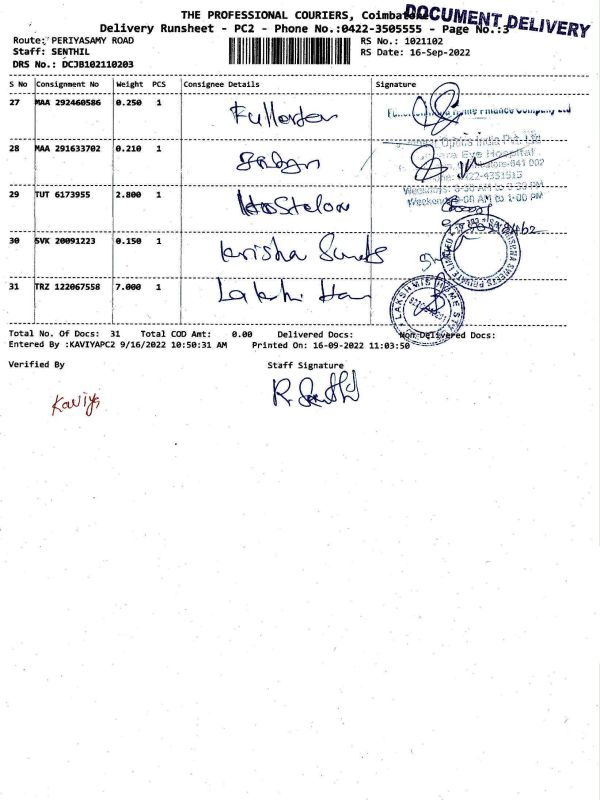 THE PROFESSIONAL COURIERS, Coimbatore
DOCUMENT DELIVERY
Delivery Runsheet - PC2 - Phone No.:0422-3505555 - Page No.:3
Route: PERIYASAMY ROAD
RS No.: 1021102
Staff: SENTHIL
RS Date: 16-Sep-2022
DRS No.: DCJB102110203
S No Consignment No Weight PCS Consignee Details Signature
27 MAA 292460586 0.250 1 Fullerton
Home Finance Company Ltd
28 MAA 291633702 0.210 1
Optics India Pvt. Ltd
Eye Hospital
641 002
0422-4351515
29 TUT 6173955 2.800 1
30 SVK 20091223 0.150 1 krisha Sweets
KRISHNA SWEETS PRIVATE LIMITED
31 TRZ 122067558 7.000 1
LAKSHMIS HOME
Total No. Of Docs: 31 Total COD Amt: 0.00 Delivered Docs: Non Delivered Docs:
Entered By :KAVIYAPC2 9/16/2022 10:50:31 AM Printed On: 16-09-2022 11:03:50
Verified By Staff Signature
Kaviya R. Senthil